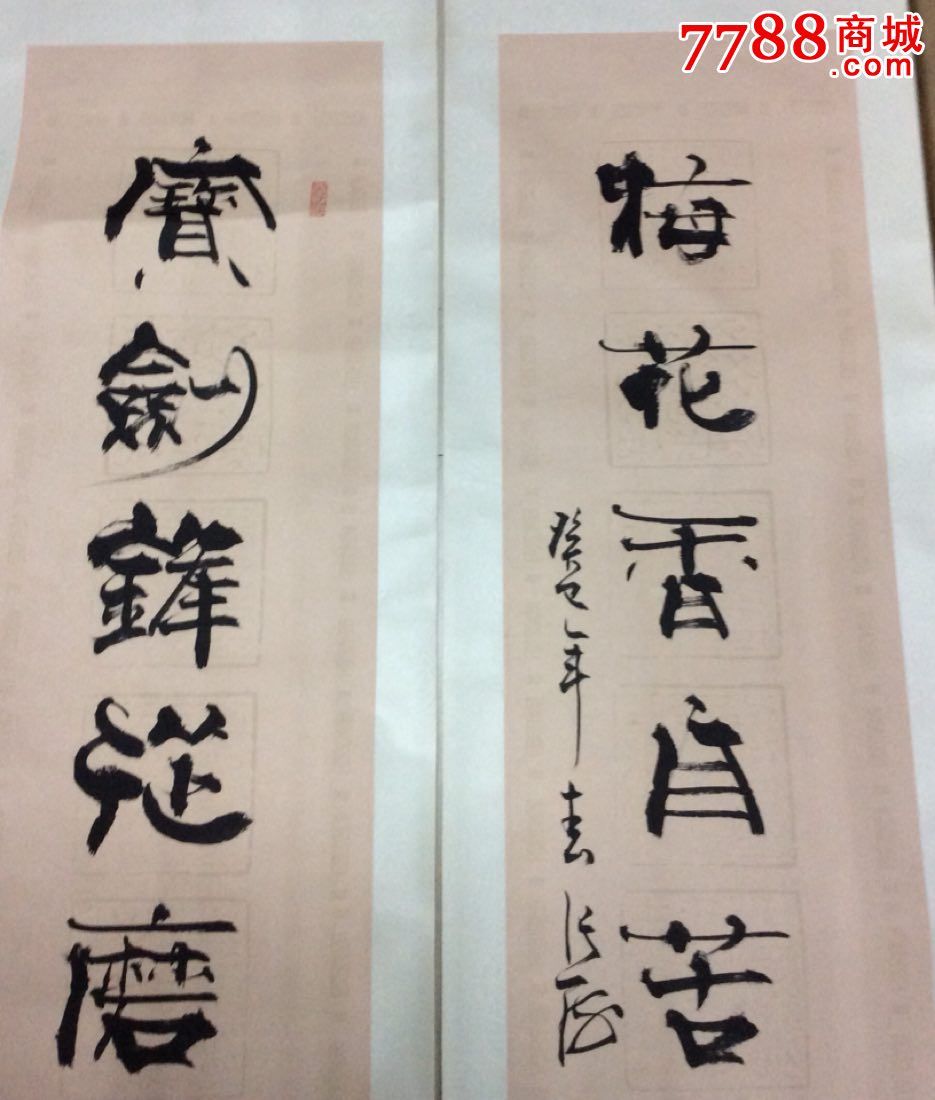 7788商城
.com
寶劍鋒從磨
梅花香自苦
癸巳年春